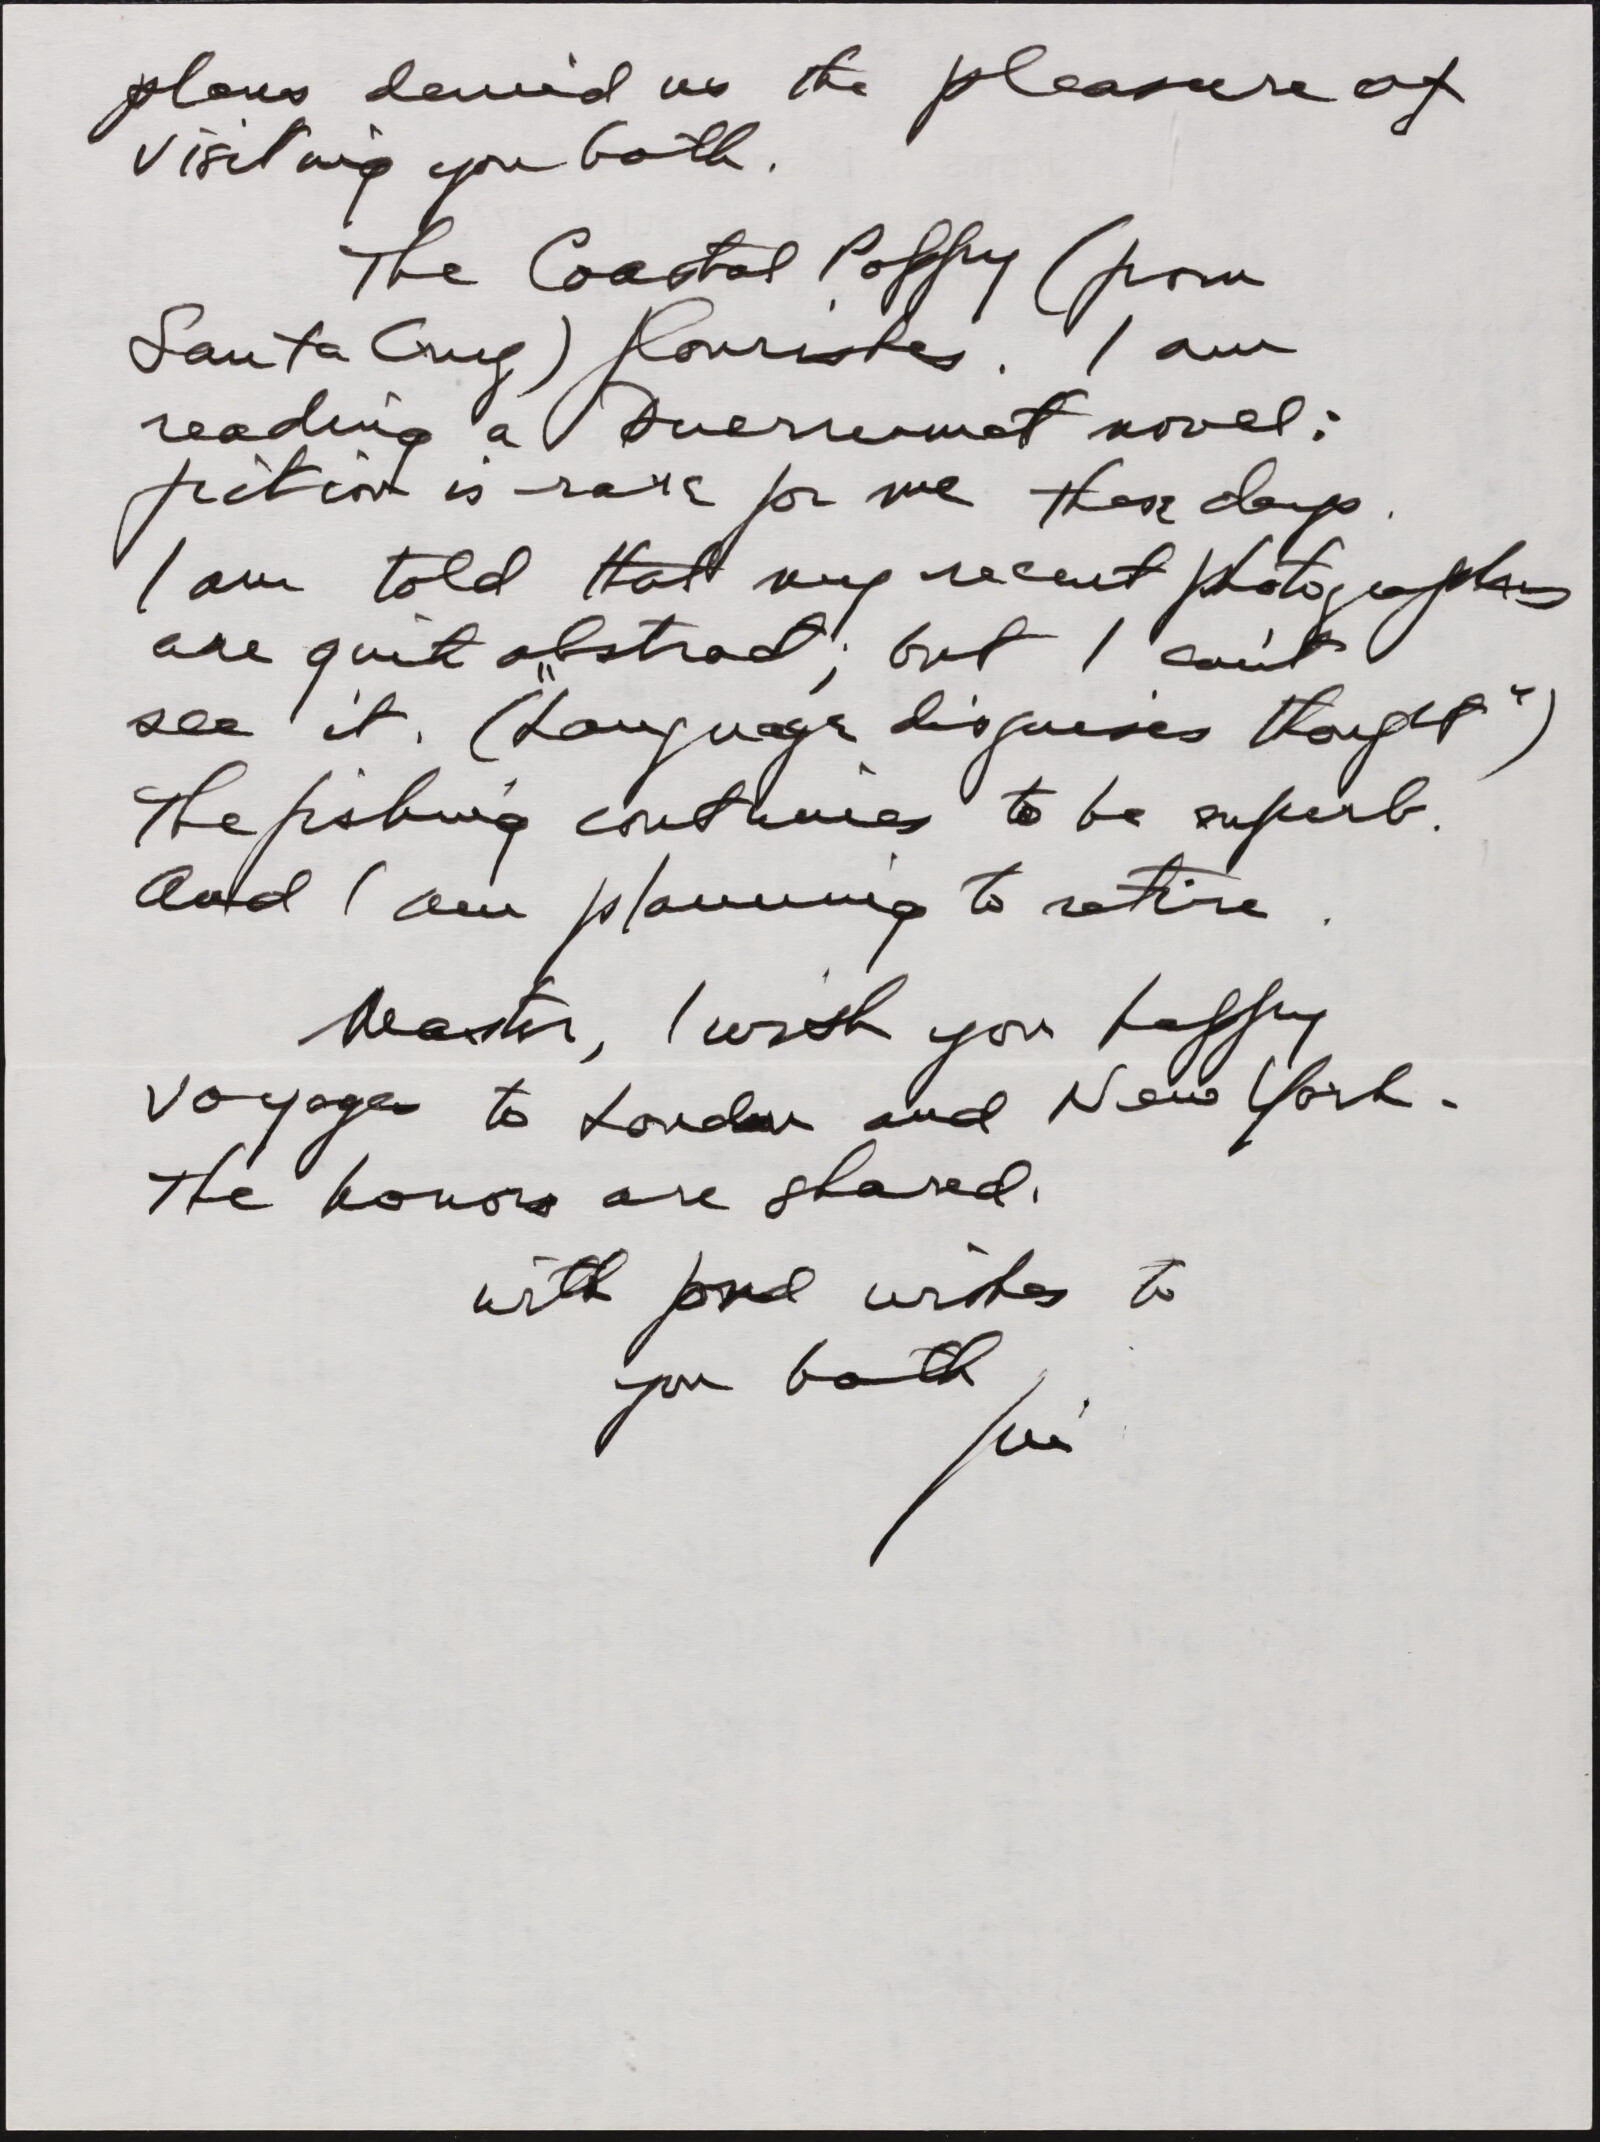 plans denied us the pleasure of
visiting you both.
The Coastal Poppy (from
Santa Cruz) flourishes. I am
reading a Duerrenmat novel:
fiction is rare for me these days.
I am told that my recent photographs
are quite abstract; but I can't
see it. ("Language disguises thought")
The fishing continues to be superb.
And I am planning to retire.
Master, I wish you happy
voyages to London and New York.
The honors are shared.
with fond wishes to
you both
Jim